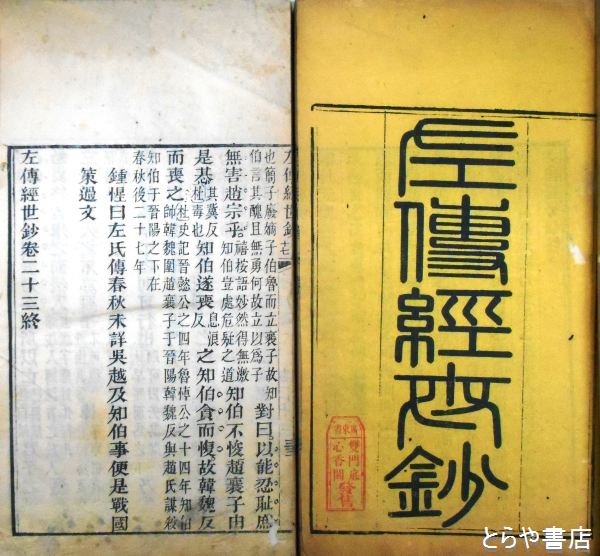 左傳經世鈔
廣東省
雙門底
心香閣
發售
左傳經世鈔
也簡子廢嫡子伯魯而立襄子故知
伯言其醜且無勇何故立以爲子
對曰以能忍恥庶
無害趙宗乎
禧按語妙然得無激
知伯豈處危疑之道
知伯不悛趙襄子由
是惎
其冀反
杜毒也
知伯遂喪
息浪
反
之知伯貪而愎故韓魏反
而喪之
杜史記晉懿公之四年魯悼公之十四年知伯
帥韓魏圍趙襄子于晉陽韓魏反與趙氏謀殺
知伯于晉陽之下在
春秋後二十七年
鍾惺曰左氏傳春秋未詳吳越及知伯事便是戰國
策過文
左傳經世鈔卷二十三終
とらや書店